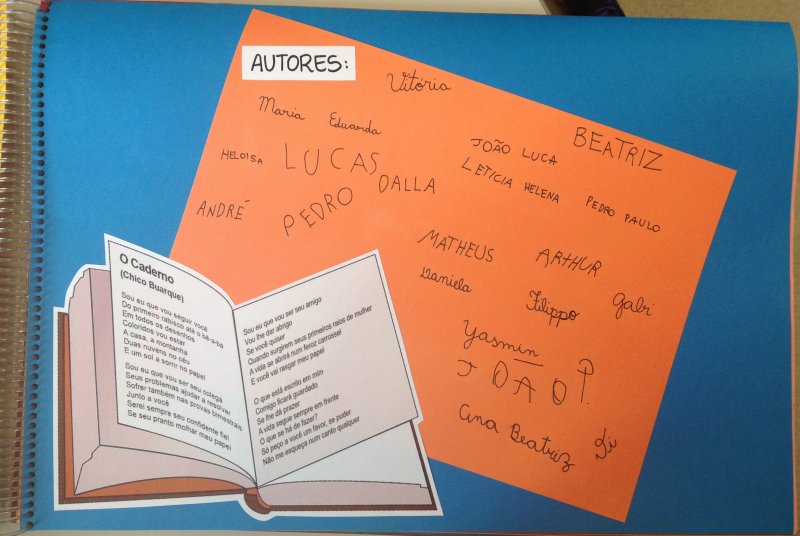 AUTORES:
Vitória
Maria Eduarda
BEATRIZ
JOÃO LUCA
HELOISA
LUCAS
LETICIA HELENA
DALLA
PEDRO PAULO
ANDRÉ
PEDRO
MATHEUS
ARTHUR
Daniela
Filippo
Gabi
Yasmin
JOÃO P
Ana Beatriz
O Caderno
(Chico Buarque)
Sou eu que vou seguir você
Do primeiro rabisco até o bê-a-ba
Em todos os desenhos
Coloridos vou estar
A casa, a montanha
Duas nuvens no céu
E um sol a sorrir no papel
Sou eu que vou ser seu colega
Seus problemas ajudar a resolver
Sofrer também nas provas bimestrais
Junto a você
Serei sempre seu confidente fiel
Se seu pranto molhar meu papel
Sou eu que vou ser seu amigo
Vou lhe dar abrigo
Se você quiser
Quando surgirem seus primeiros raios de mulher
A vida se abrirá num feroz carrossel
E você vai rasgar meu papel
O que está escrito em mim
Comigo ficará guardado
Se lhe dá prazer
A vida segue sempre em frente
O que se há de fazer?
Só peço a você um favor, se puder
Não me esqueça num canto qualquer